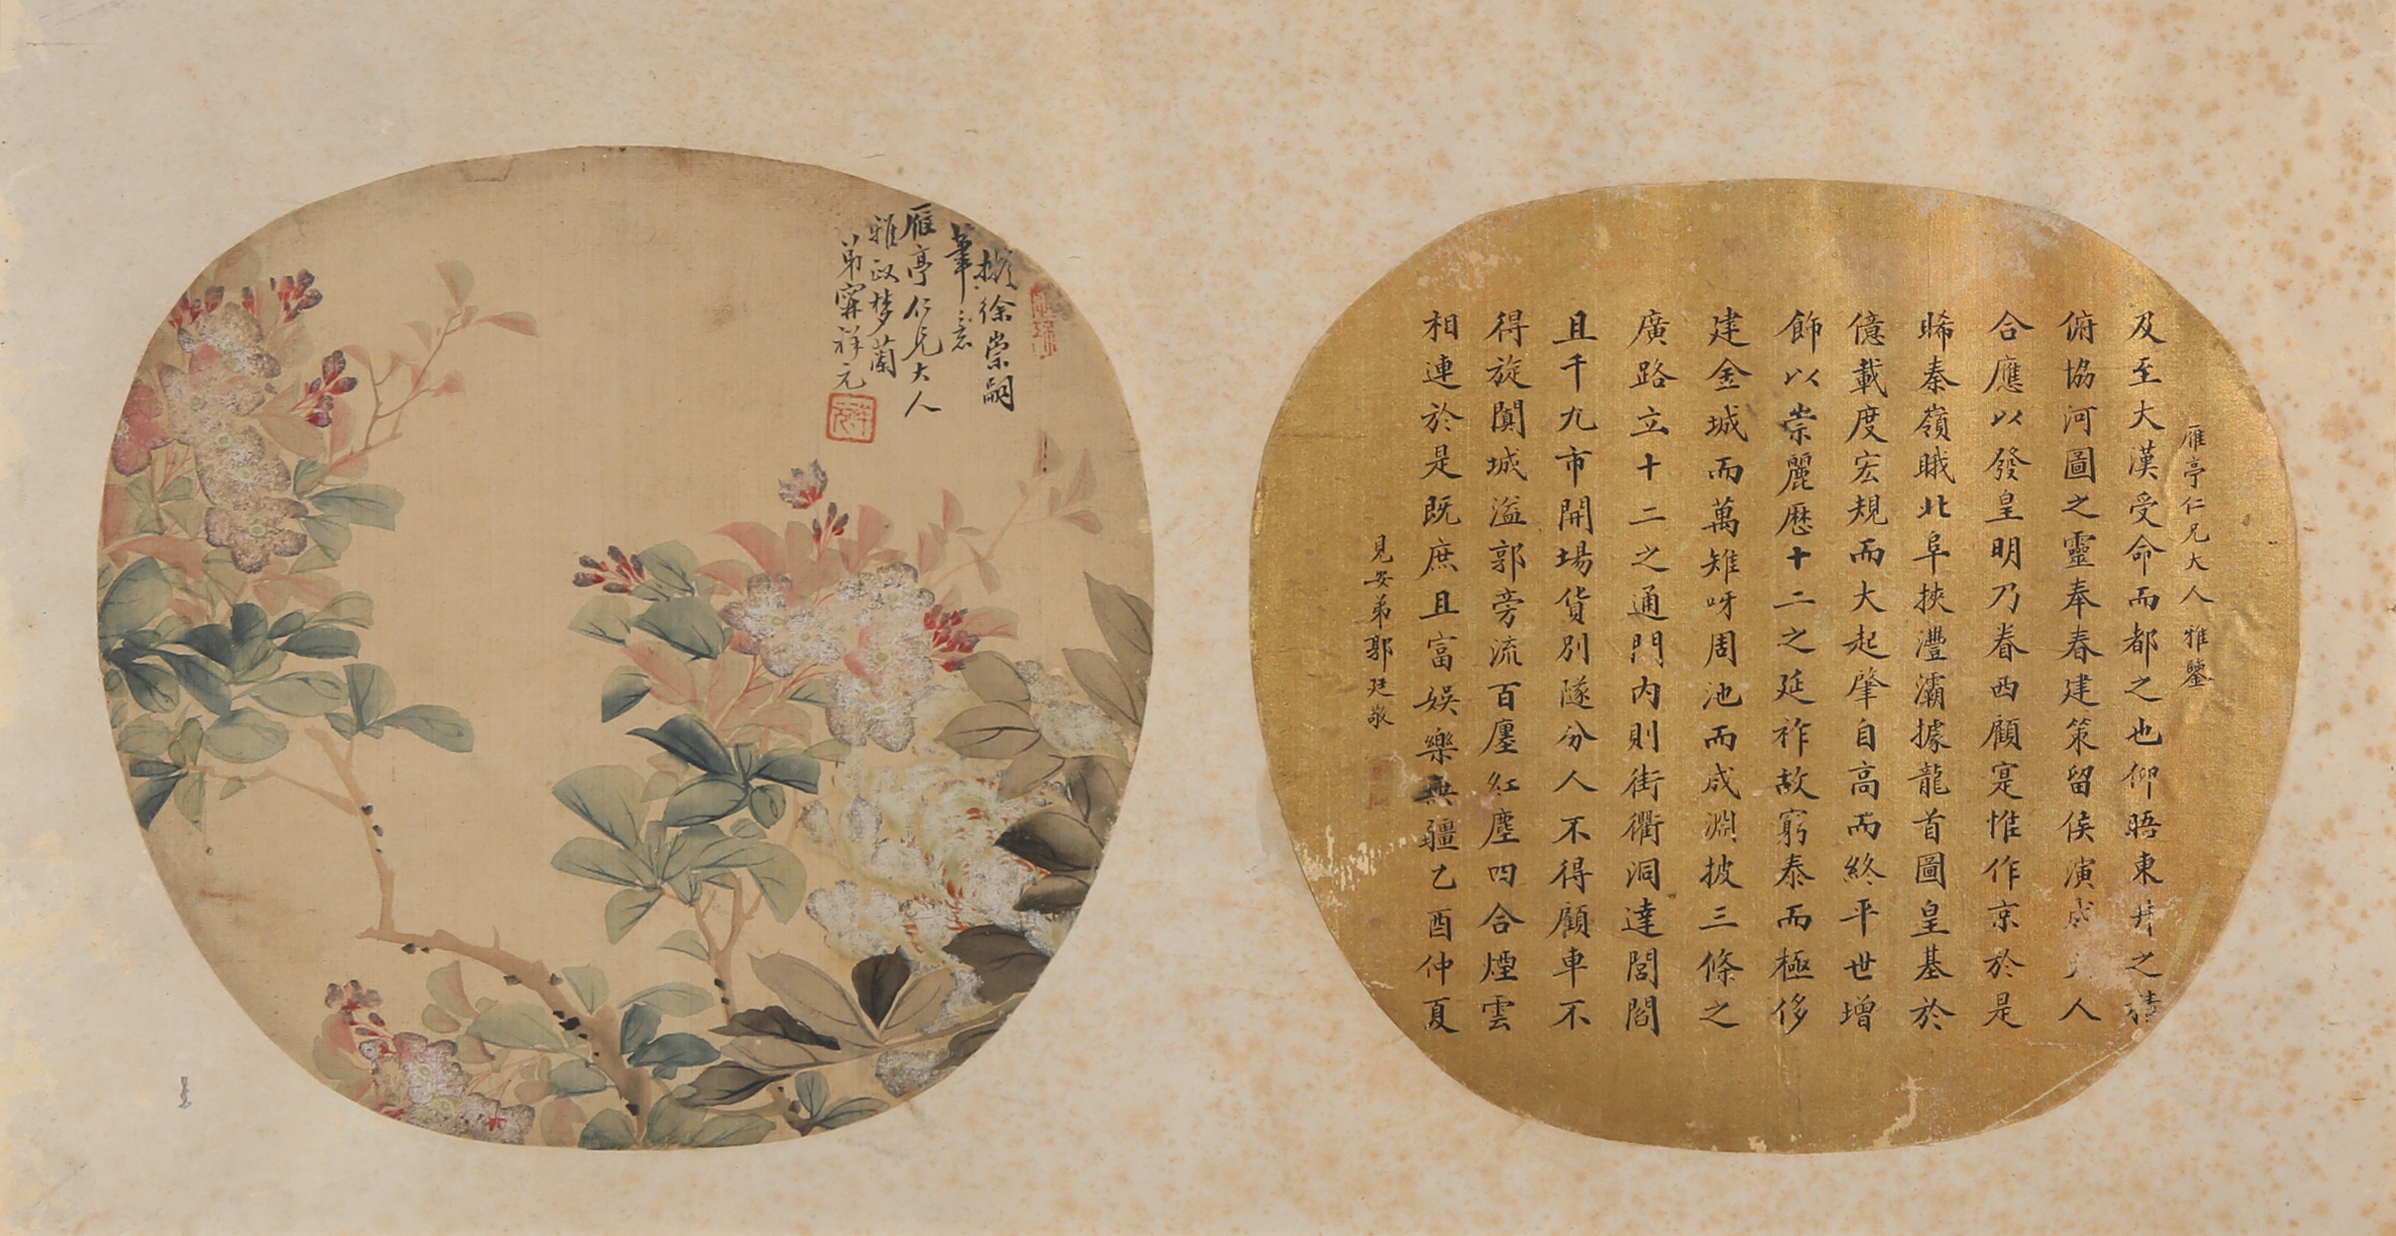 雁亭仁兄大人雅鑒
及至大漢受命而都之也仰晤東井之精
俯協河圖之靈奉春建策留侯演成人
合應以發皇明乃眷西顧寔惟作京於是
睎秦嶺睋北阜挾灃灞據龍首圖皇基於
億載度宏規而大起肇自高而終平世增
飾以崇麗歷十二之延祚故窮泰而極侈
建金城而萬雉呀周池而成淵披三條之
廣路立十二之通門内則街衢洞達閭閻
且千九市開場貨別隧分人不得顧車不
得旋闐城溢郭旁流百廛紅塵四合煙雲
相連於是既庶且富娛樂無疆乙酉仲夏
見安弟郭廷敬
擬徐崇嗣
筆意
雁亭仁兄大人
雅政梦蘭
弟祥元
祥元